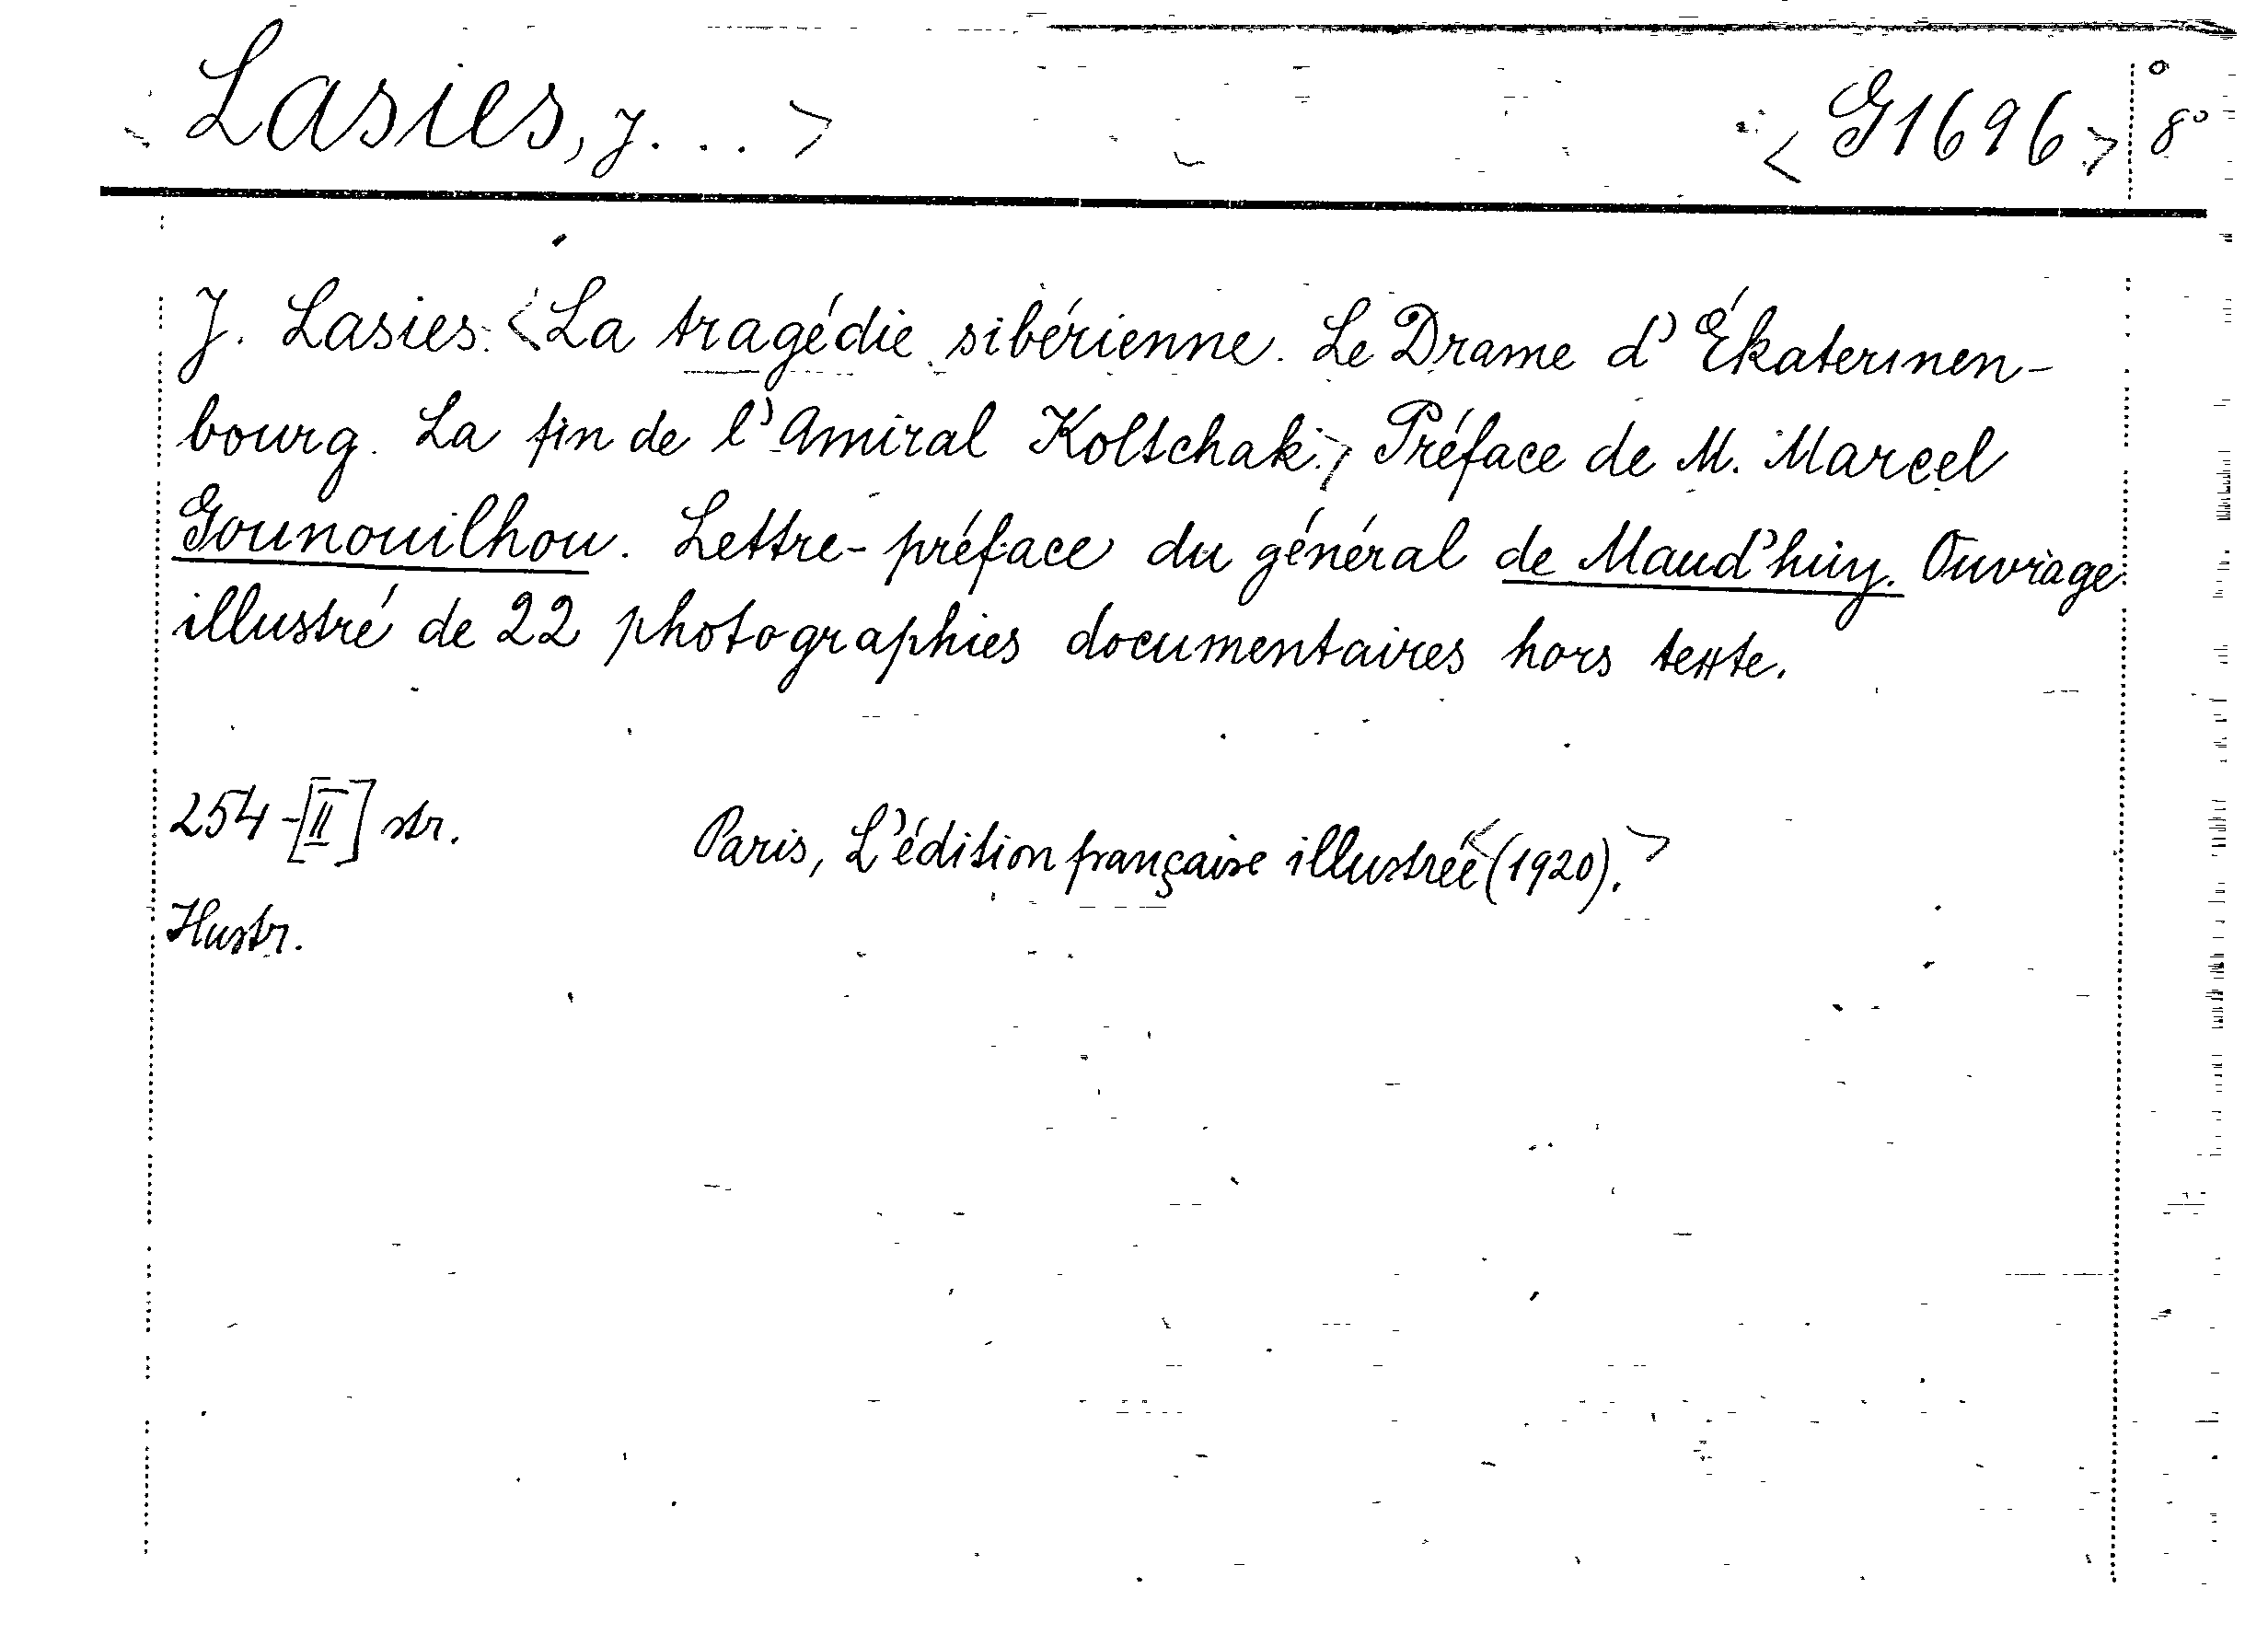 Lasies, J. . . > < G1696 > 8°
J. Lasies: <La tragédie sibérienne. Le Drame d'Ékaterinen-
bourg. La fin de l'Amiral Koltschak.> Préface de M. Marcel
Gounouilhou. Lettre-préface du général de Maud'huy. Ouvrage
illustré de 22 photographies documentaires hors texte.
254-[II] str. Paris, L'édition française illustrée <(1920).>
Ilustr.